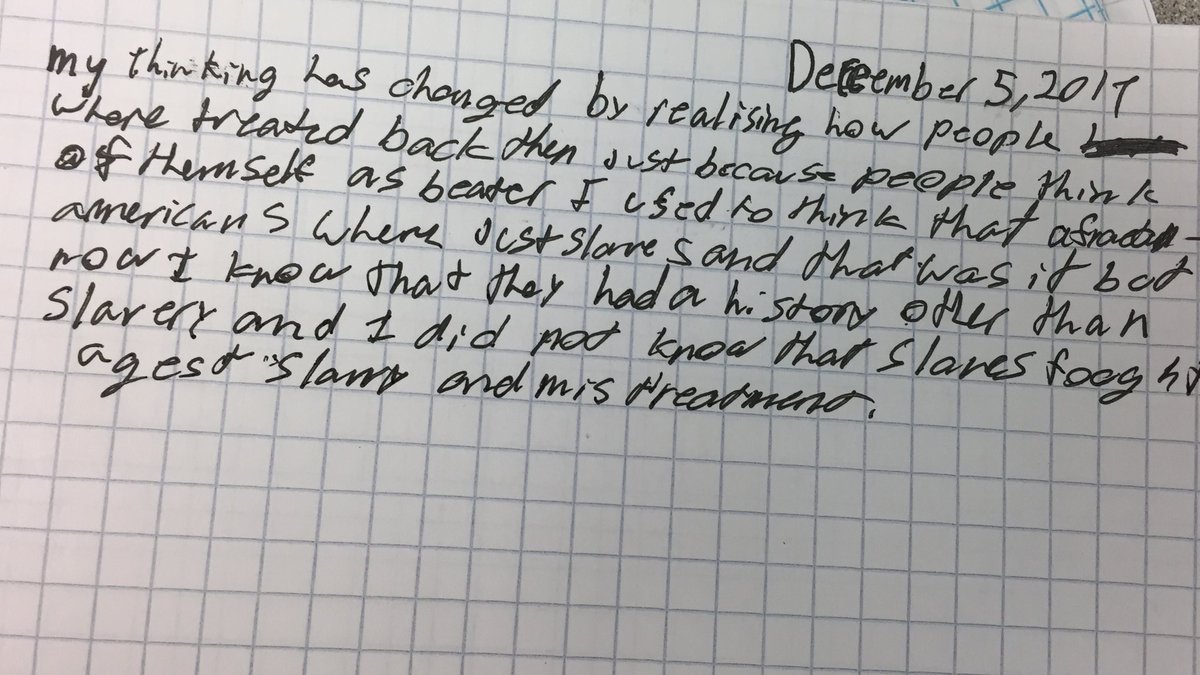 December 5, 2017
my thinking has changed by realising how people
where treated back then just because people think
of themself as beater I used to think that afracan-
americans where just slaves and that was it but
now I know that they had a history other than
slavery and I did not know that slaves fooght
agest slavry and mis treatment.